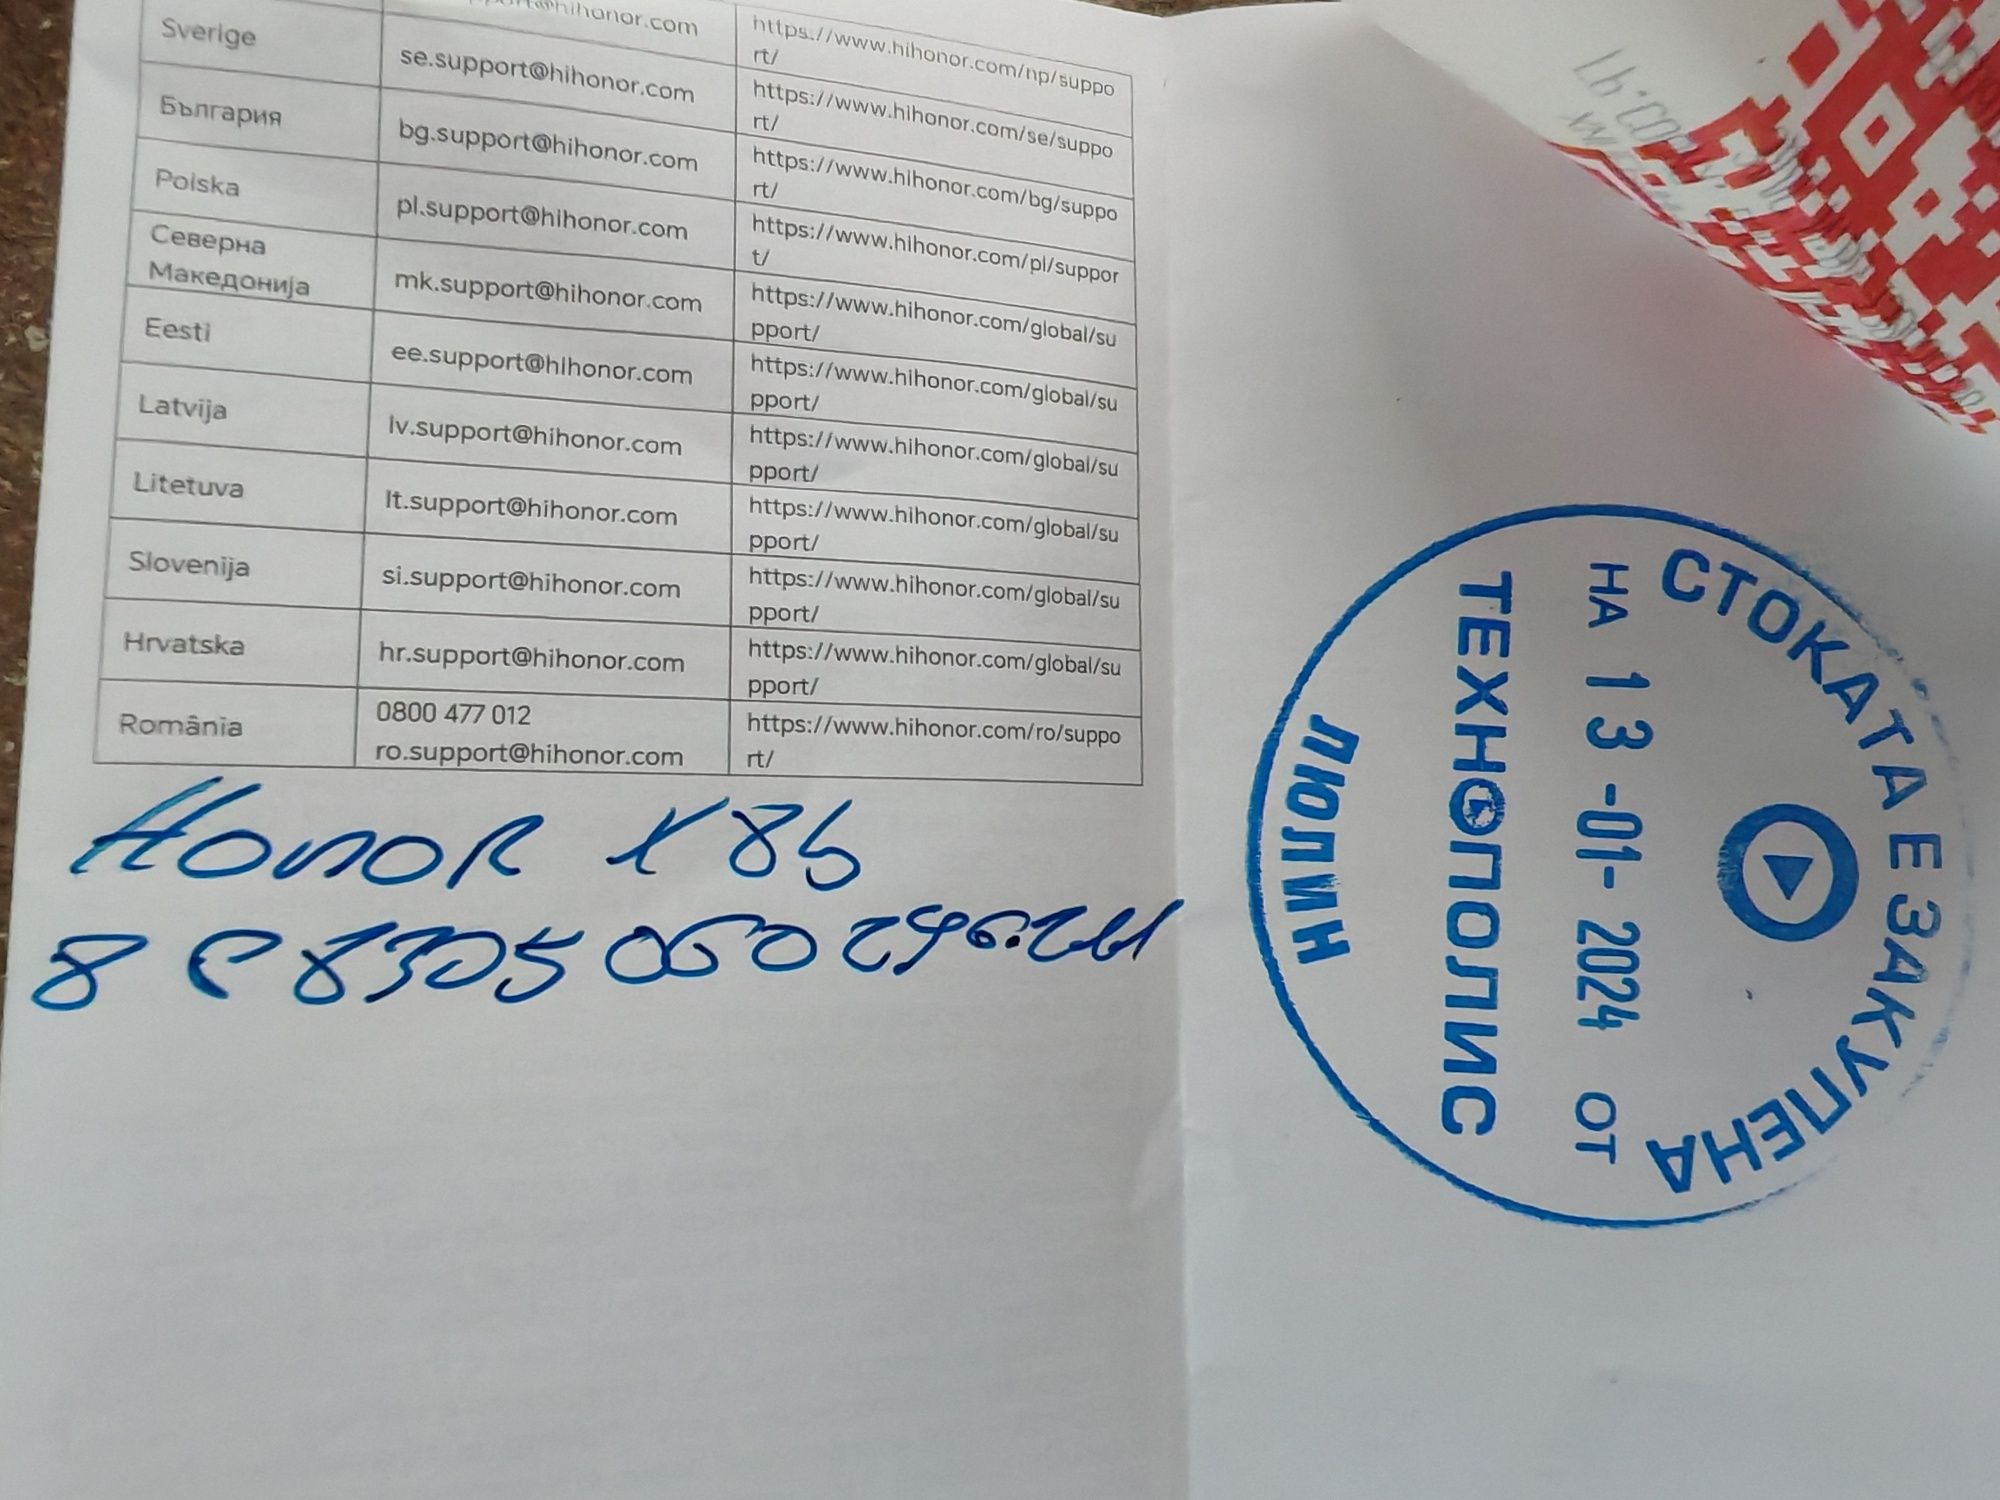 Sverige
se.support@hihonor.com
https://www.hihonor.com/np/suppo
rt/
България
bg.support@hihonor.com
https://www.hihonor.com/se/suppo
rt/
Polska
pl.support@hihonor.com
https://www.hihonor.com/bg/suppo
rt/
Северна
Македонија
mk.support@hihonor.com
https://www.hihonor.com/pl/suppor
t/
Eesti
ee.support@hihonor.com
https://www.hihonor.com/global/su
pport/
Latvija
lv.support@hihonor.com
https://www.hihonor.com/global/su
pport/
Litetuva
lt.support@hihonor.com
https://www.hihonor.com/global/su
pport/
Slovenija
si.support@hihonor.com
https://www.hihonor.com/global/su
pport/
Hrvatska
hr.support@hihonor.com
https://www.hihonor.com/global/su
pport/
România
0800 477 012
ro.support@hihonor.com
https://www.hihonor.com/ro/suppo
rt/
HONOR X8b
СТОКАТА Е ЗАКУПЕНА
НА 13 -01- 2024 ОТ
ТЕХНОПОЛИС
ЛЮЛИН